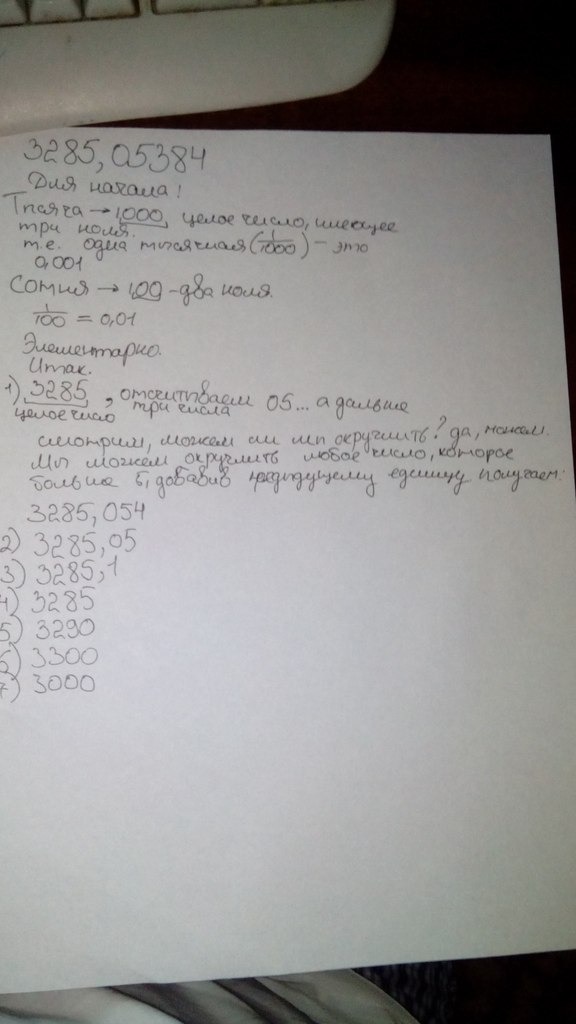 3285,05384
Для начала!
Тысяча → 1000, целое число, имеющее
три ноля.
т.е. одна тысячная (1/1000) - это
0,001
Сотня → 100 - два ноля.
1/100 = 0,01
Элементарно.
Итак.
1) 3285, отсчитываем 05... а дальше
целое число три числа
смотрим, можем ли мы округлить? да, можем.
Мы можем округлить любое число, которое
больше 5, добавив предыдущему единицу получаем:
3285,054
2) 3285,05
3) 3285,1
4) 3285
5) 3290
6) 3300
7) 3000